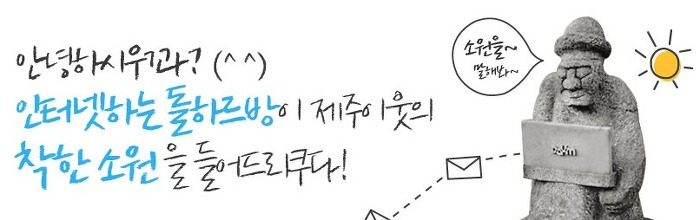 안녕하시우꽈? (^ ^)
인터넷하는 돌하르방이 제주이웃의
착한 소원을 들어드리쿠다!
소원을~
말해봐~
Daum